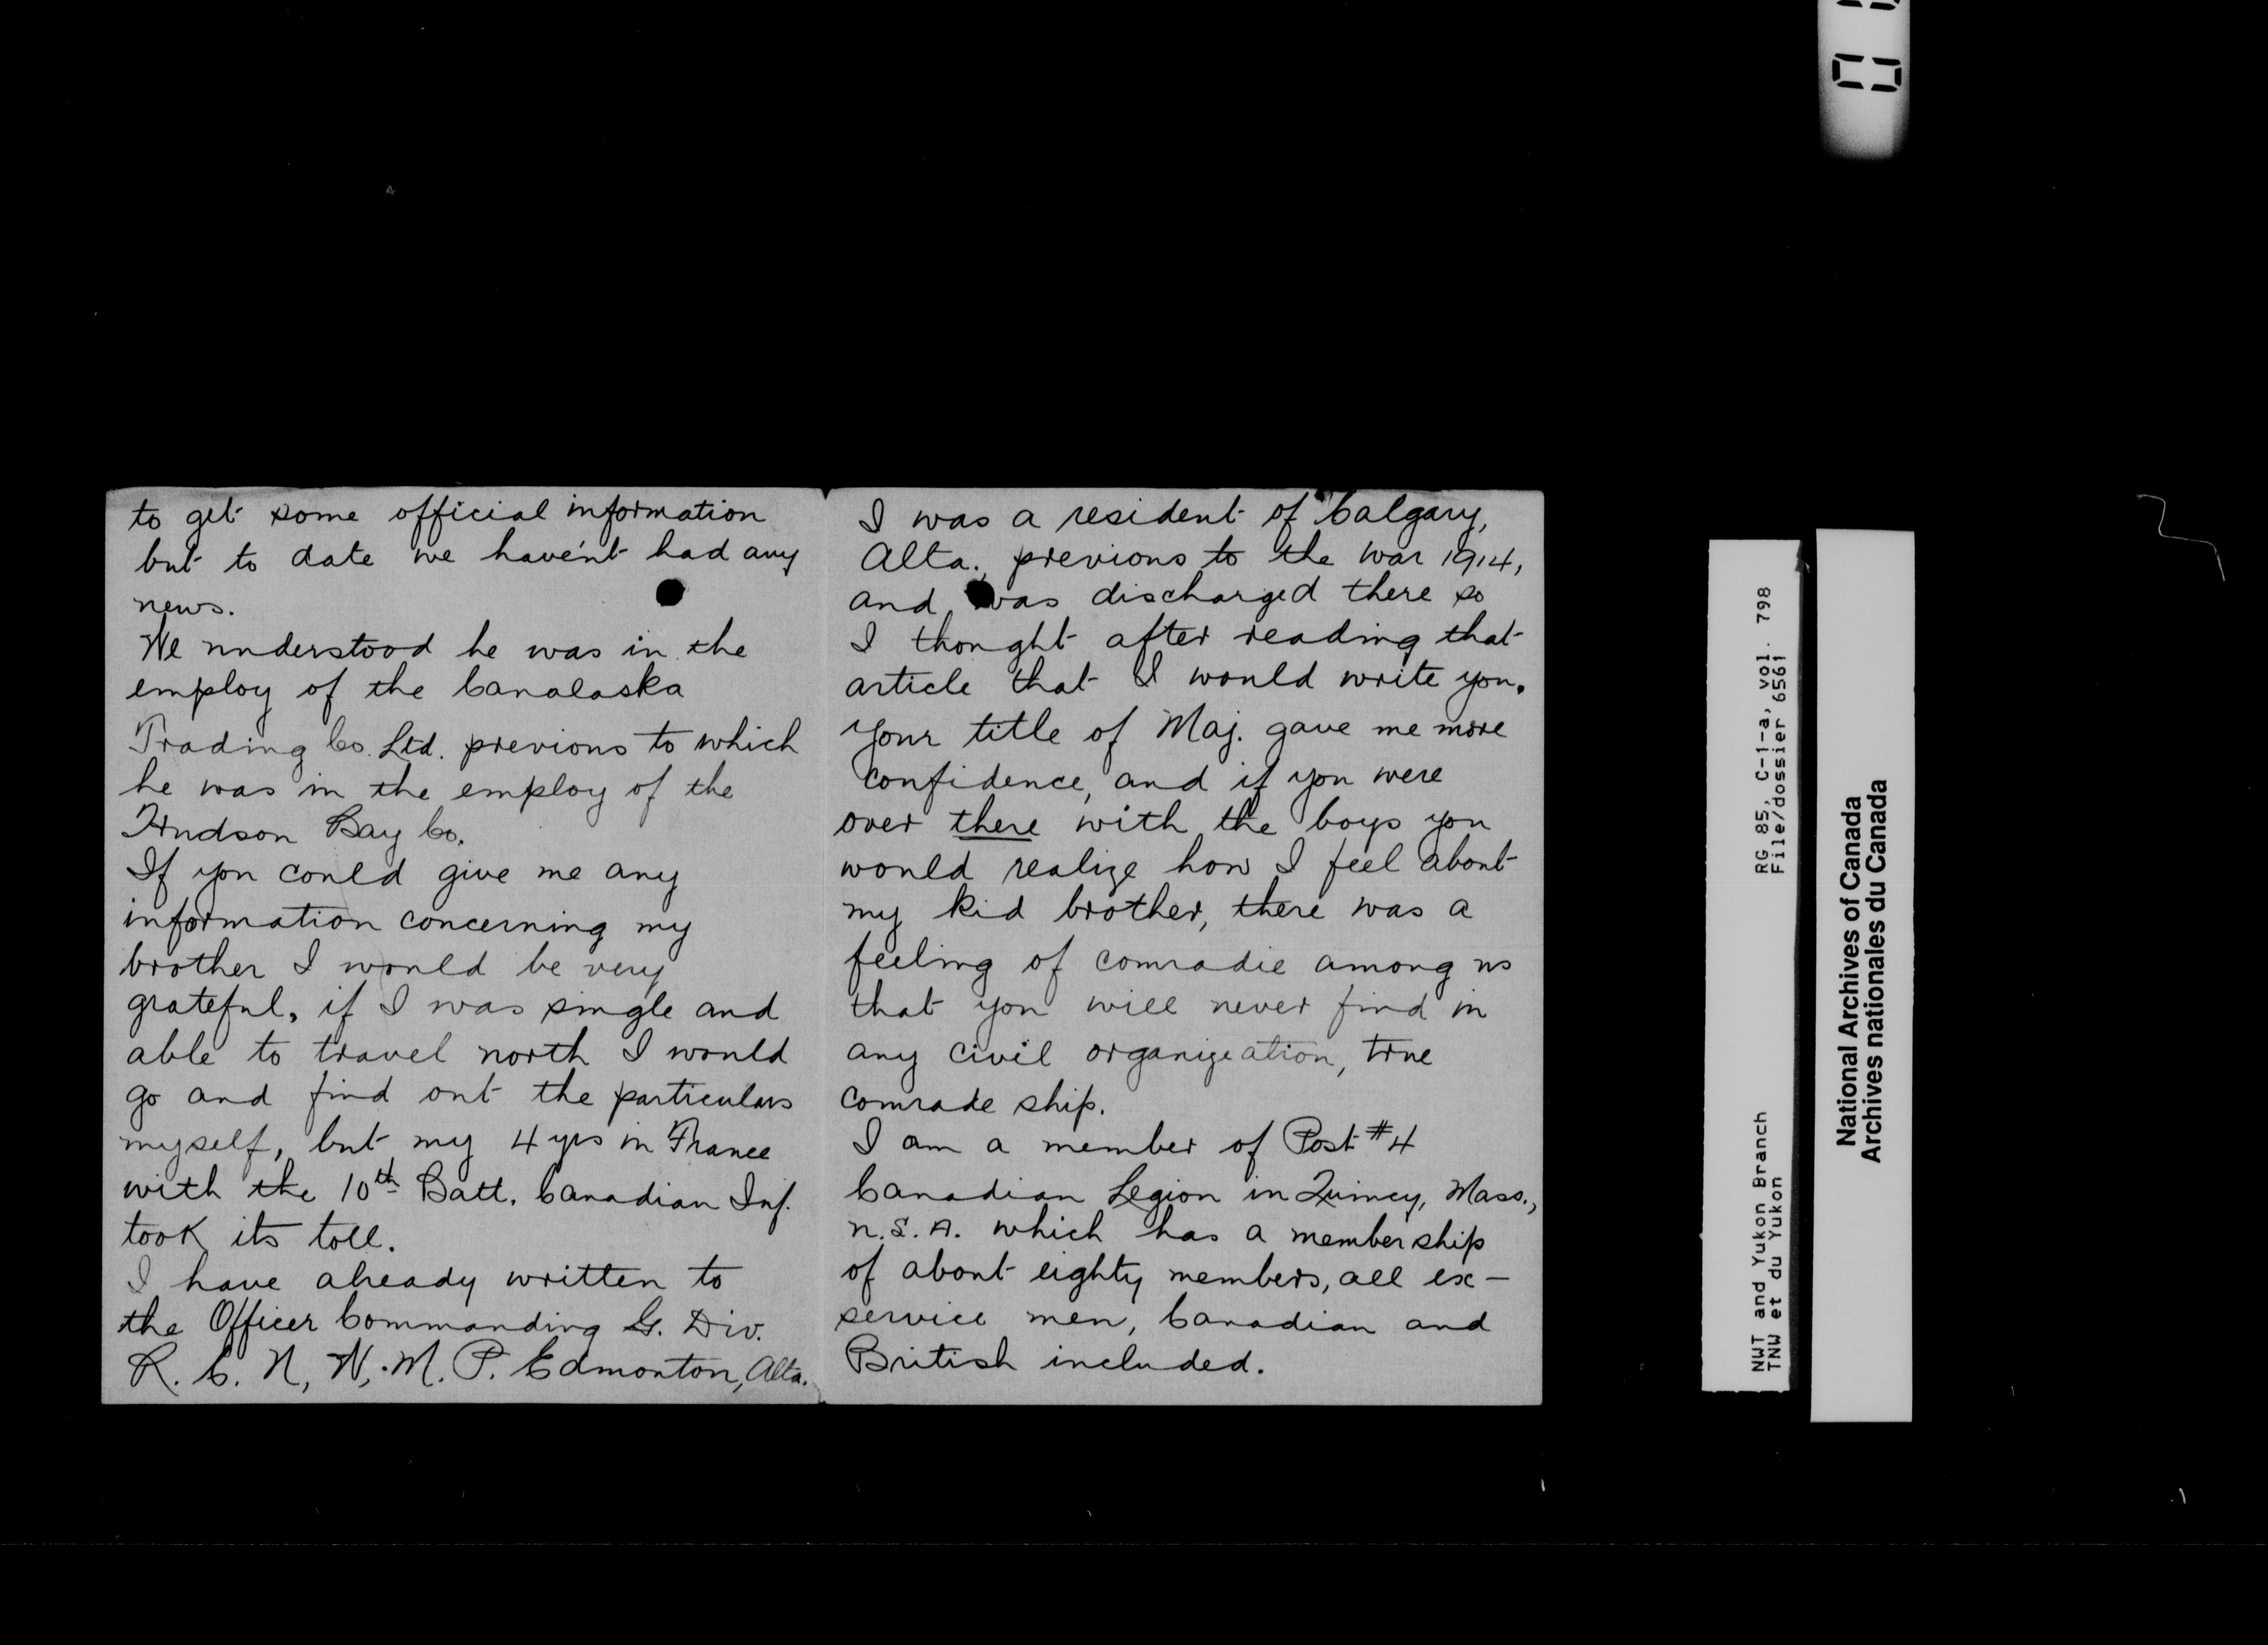 to get some official information
but to date we have'nt had any
news.
We understood he was in the
employ of the Canalaska
Trading Co. Ltd. previous to which
he was in the employ of the
Hudson Bay Co.
If you could give me any
information concerning my
brother I would be very
grateful, if I was single and
able to travel north I would
go and find out the particulars
myself, but my 4 yrs in France
with the 10th Batt. Canadian Inf.
took its toll.
I have already written to
the Officer Commanding G. Div.
R. C. N. W. M. P. Edmonton, Alta.
I was a resident of Calgary,
Alta., previous to the war 1914,
and was discharged there so
I thought after reading that
article that I would write you.
Your title of Maj. gave me more
confidence, and if you were
over there with the boys you
would realize how I feel about
my kid brother, there was a
feeling of comradie among us
that you will never find in
any civil organization, true
comrade ship.
I am a member of Post #4
Canadian Legion in Quincy, Mass.,
U.S.A. which has a membership
of about eighty members, all ex-
service men, Canadian and
British included.
RG 85, C-1-a, vol. 798
File/dossier 6561
NWT and Yukon Branch
TNW et du Yukon
National Archives of Canada
Archives nationales du Canada